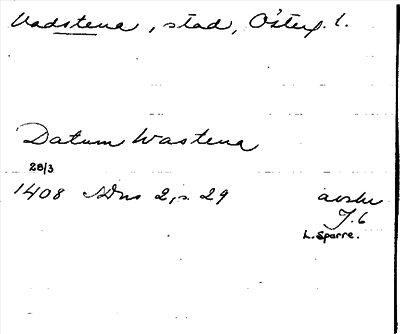 Vadstena, stad, Österg. l.
Datum Wastena
28/3
1408 SDns 2, s. 29 avskr
J. 6
L. Sparre.